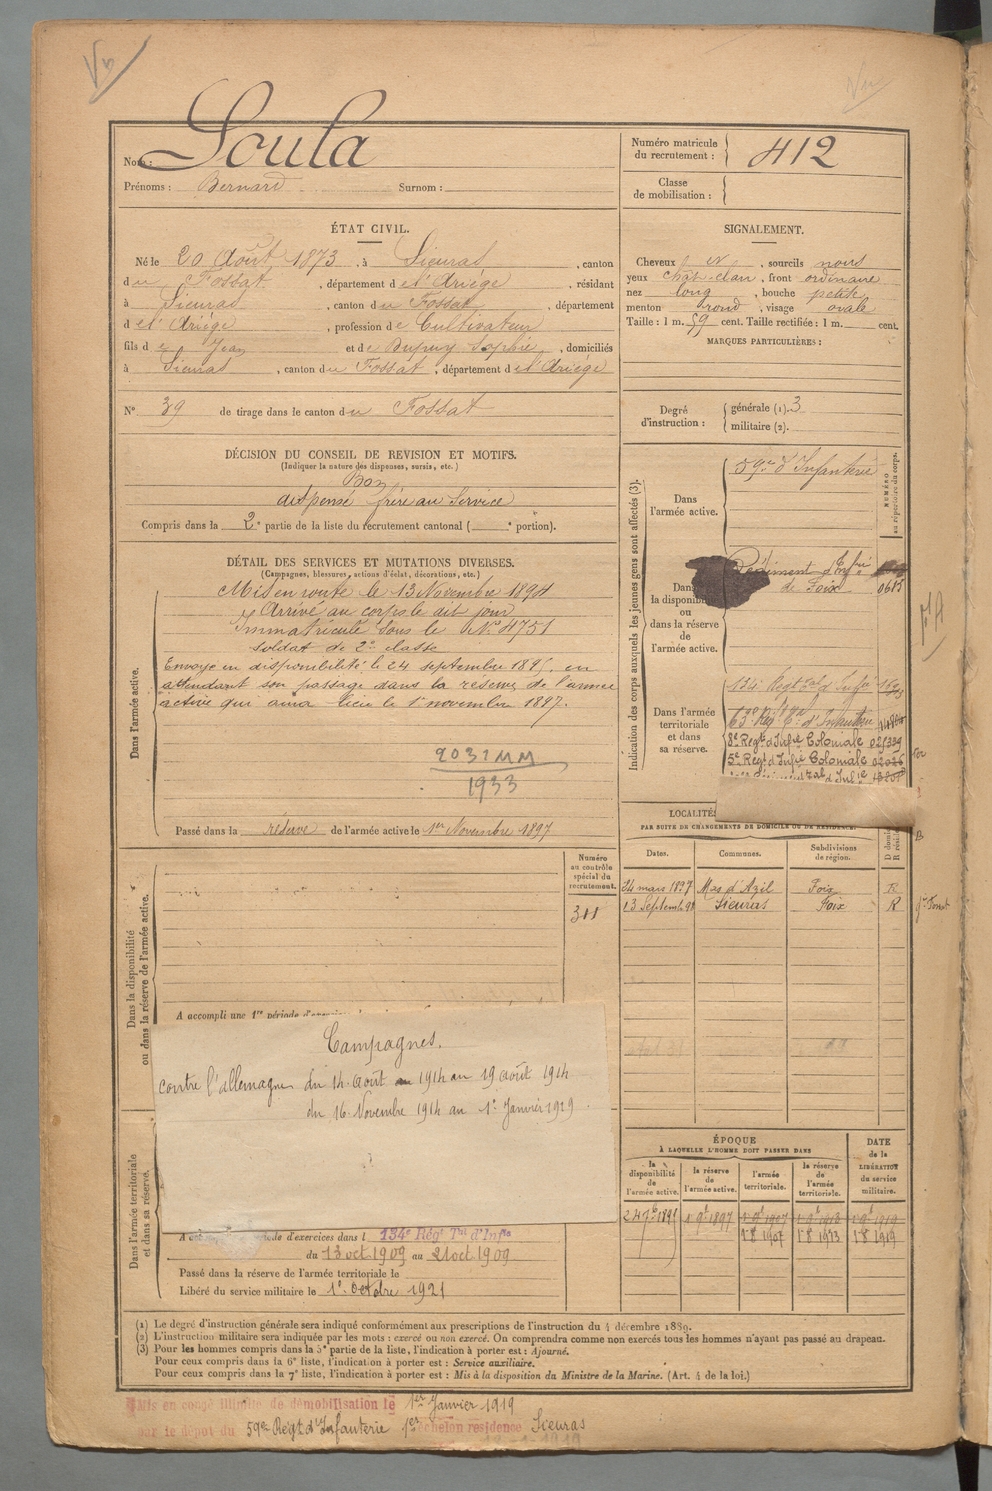 Nom : Soula
Prénoms : Bernard Surnom :
Numéro matricule du recrutement : 412
Classe de mobilisation :
ÉTAT CIVIL.
Né le 20 Août 1873, à Sieuras, canton
du Fossat, département de l'Ariège, résidant
à Sieuras, canton du Fossat, département
de l'Ariège, profession de Cultivateur
fils de Jean et de Dupuy Sophie, domiciliés
à Sieuras, canton du Fossat, département de l'Ariège
N° 39 de tirage dans le canton du Fossat
SIGNALEMENT.
Cheveux et N, sourcils noirs
yeux chât-clair, front ordinaire
nez long, bouche petite
menton rond, visage ovale
Taille : 1 m. 59 cent. Taille rectifiée : 1 m. cent.
MARQUES PARTICULIÈRES :
Degré d'instruction : générale (1). 3
militaire (2).
DÉCISION DU CONSEIL DE REVISION ET MOTIFS.
(Indiquer la nature des dispenses, sursis, etc.)
Bon
dispensé frère au Service
Compris dans la 2e partie de la liste du recrutement cantonal ( e portion).
DÉTAIL DES SERVICES ET MUTATIONS DIVERSES.
(Campagnes, blessures, actions d'éclat, décorations, etc.)
Dans l'armée active.
Mis en route le 13 Novembre 1894
Arrivé au corps le dit jour
Immatriculé sous le N° 4751
soldat de 2e classe
Envoyé en disponibilité le 24 septembre 1895, en
attendant son passage dans la réserve de l'armée
active qui aura lieu le 1er novembre 1897.
2031 MM
1933
Passé dans la réserve de l'armée active le 1er Novembre 1897
Indication des corps auxquels les jeunes gens sont affectés (3).
NUMÉRO au répertoire du corps.
Dans l'armée active.
59me d'Infanterie
Dans la disponibilité ou dans la réserve de l'armée active.
Régiment d'Infrie
de Foix 0685
Dans l'armée territoriale et dans sa réserve.
134e Régt tal d'Infrie
8e Regt d'Infie Coloniale 025339
5e Regt d'Infie Coloniale 02026
LOCALITÉS
PAR SUITE DE CHANGEMENTS DE DOMICILE OU DE RÉSIDENCE.
Dates. Communes. Subdivisions de région.
24 mars 1897 Mas d'Azil Foix R
13 Septemb 98 Sieuras Foix R
Dans la disponibilité ou dans la réserve de l'armée active.
Numéro au contrôle spécial du recrutement.
311
A accompli une 1re période d'exercices
Campagnes.
contre l'allemagne du 14 Août 1914 au 19 août 1914
du 16 Novembre 1914 au 1er Janvier 1919
Dans l'armée territoriale et dans sa réserve.
période d'exercices dans l 134e Régt Tal d'Infie
du 13 oct 1909 au 21 oct 1909
Passé dans la réserve de l'armée territoriale le
Libéré du service militaire le 1er octobre 1921
ÉPOQUE
À LAQUELLE L'HOMME DOIT PASSER DANS
la disponibilité de l'armée active. la réserve de l'armée active. l'armée territoriale. la réserve de l'armée territoriale. DATE de la LIBÉRATION du service militaire.
24 7bre 1895 1 9b 1897 1 9b 1907 1 9b 1913 1 9b 1919
1 8 1907 1 8 1913 1 8 1919
(1) Le degré d'instruction générale sera indiqué conformément aux prescriptions de l'instruction du 4 décembre 1889.
(2) L'instruction militaire sera indiquée par les mots : exercé ou non exercé. On comprendra comme non exercés tous les hommes n'ayant pas passé au drapeau.
(3) Pour les hommes compris dans la 5e partie de la liste, l'indication à porter est : Ajourné.
Pour ceux compris dans la 6e liste, l'indication à porter est : Service auxiliaire.
Pour ceux compris dans la 7e liste, l'indication à porter est : Mis à la disposition du Ministre de la Marine. (Art. 4 de la loi.)
Mis en congé illimité de démobilisation le 1er Janvier 1919
par le dépôt du 59e Régt d'Infanterie 1er échelon résidence Sieuras